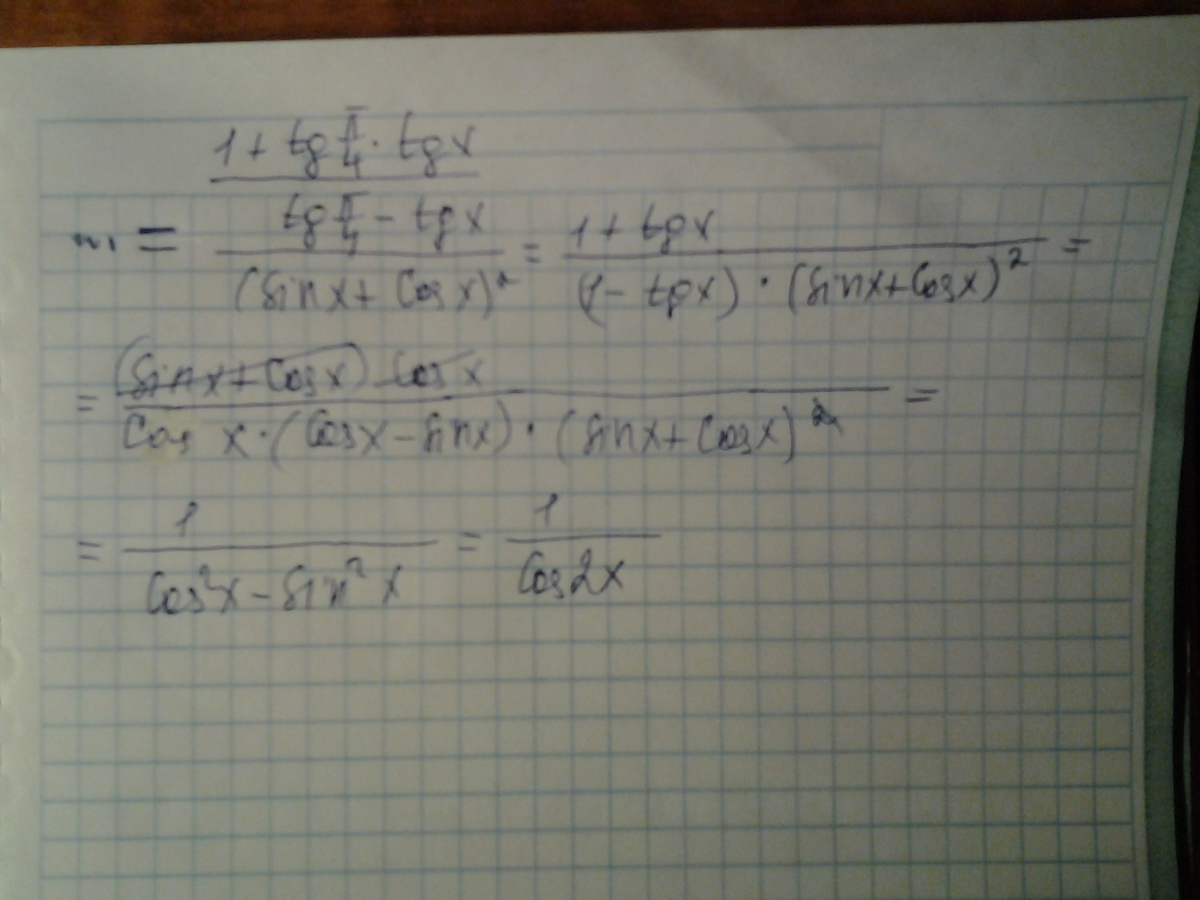 1 + tg π/4 · tg x
tg π/4 − tg x
= (sin x + cos x)² = 1 + tg x / (1 − tg x) · (sin x + cos x)² =
= (sin x + cos x) cos x / cos x · (cos x − sin x) · (sin x + cos x)² =
= 1 / cos²x − sin²x = 1 / cos 2x